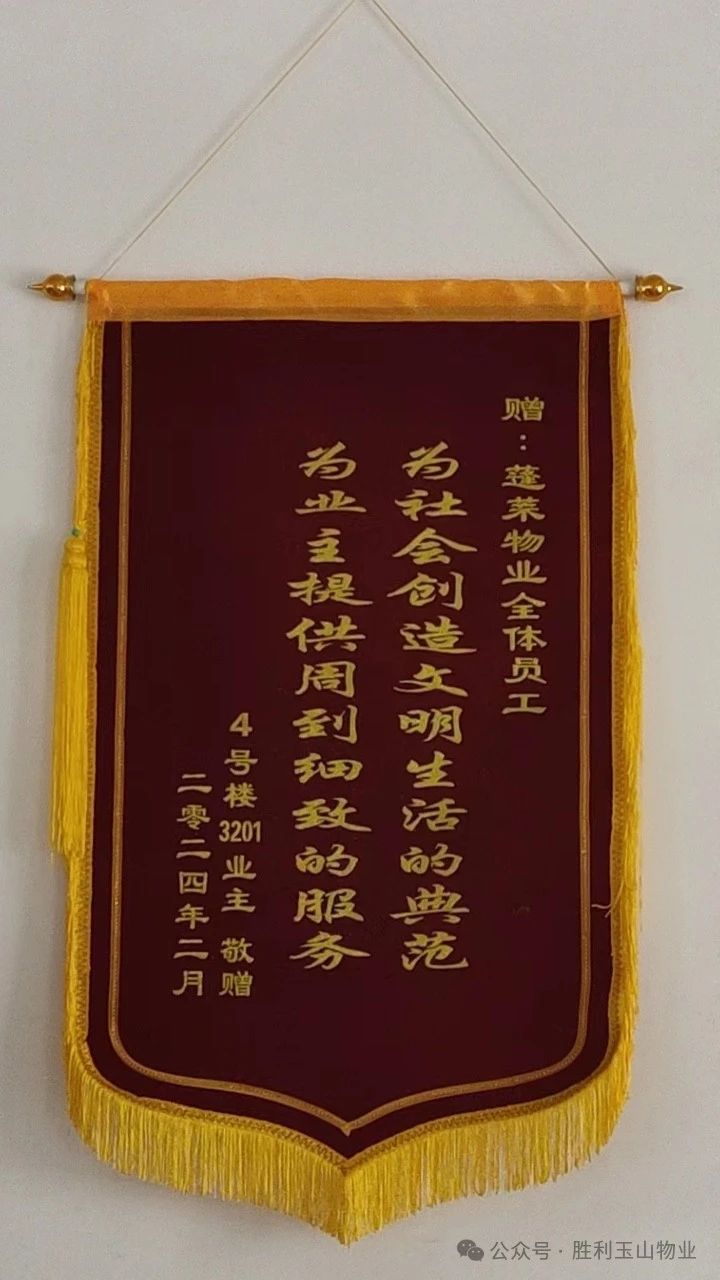 赠：蓬莱物业全体员工
为社会创造文明生活的典范
为业主提供周到细致的服务
4号楼3201业主 敬赠
二零二四年二月
公众号·胜利玉山物业